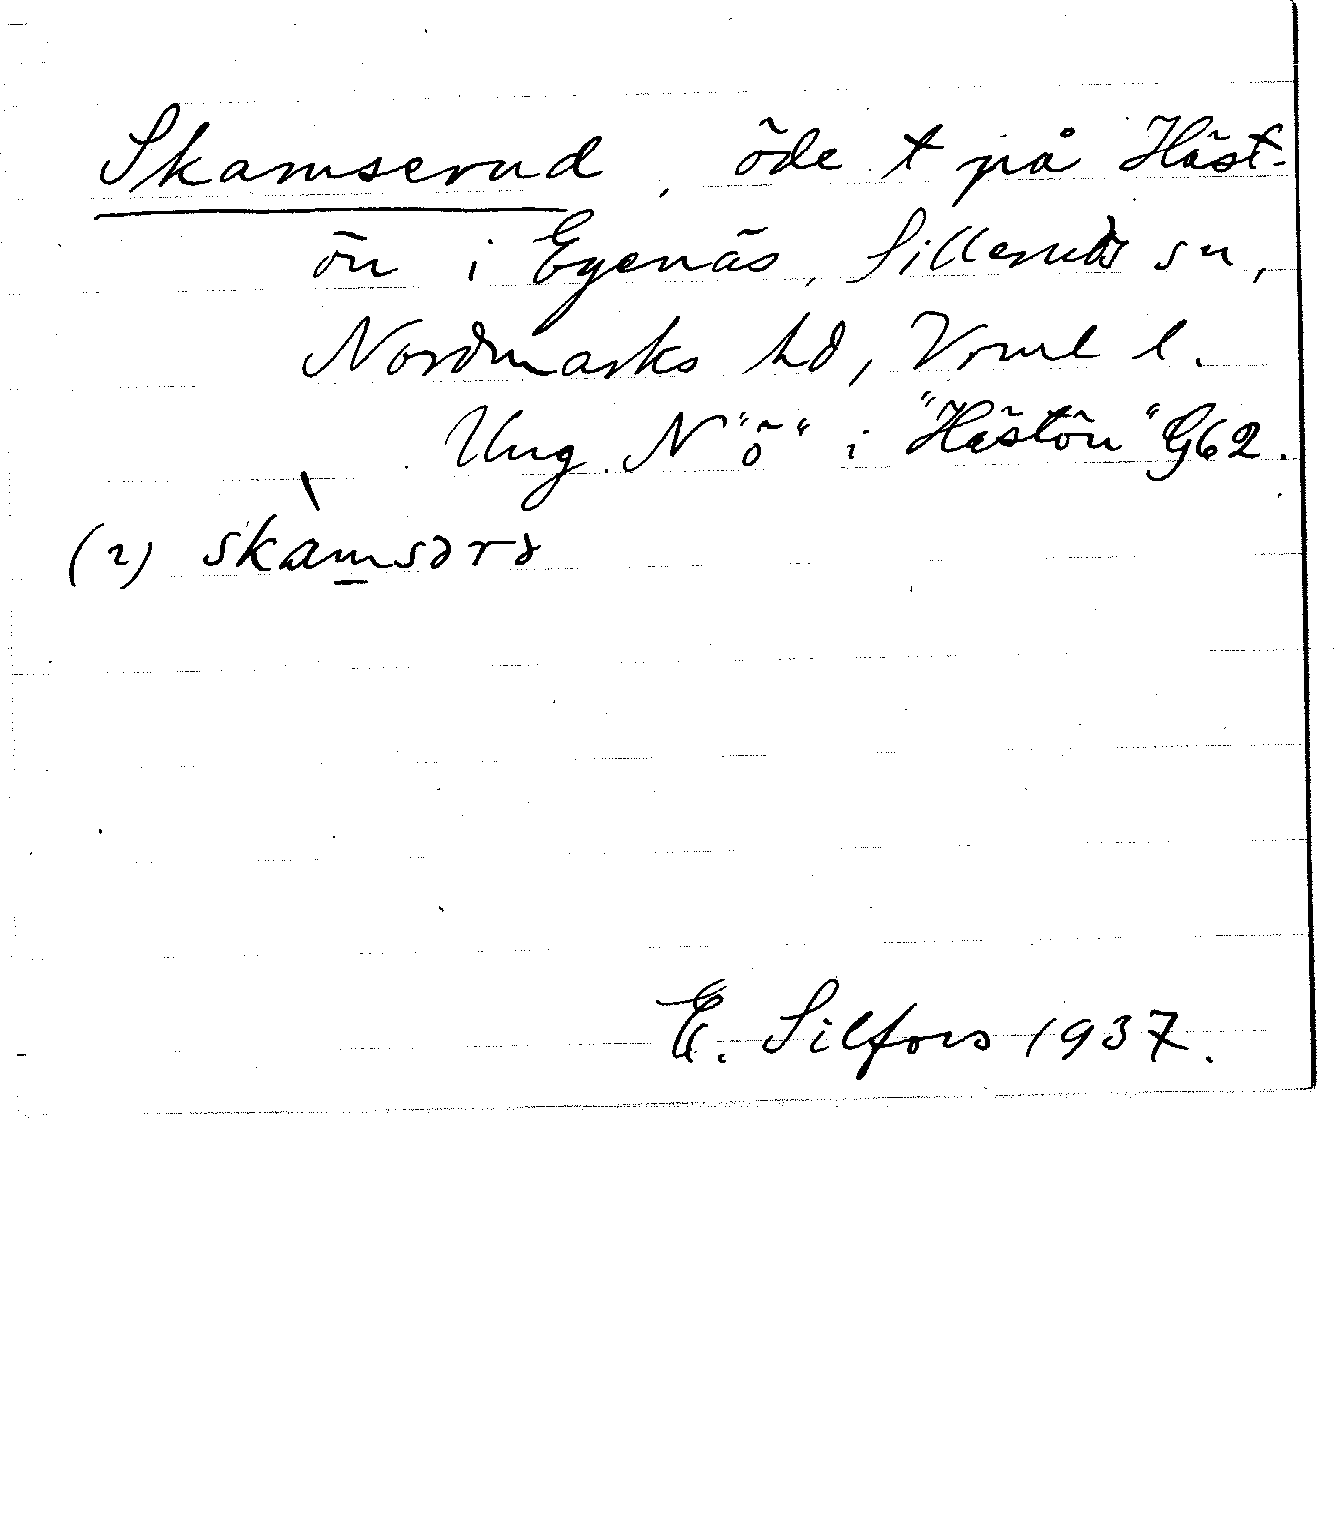 Skamserud, öde t på Häst-
ön i Egenäs, Silleruds sn,
Nordmarks hd, Vrml l.
Ung. N "ö" i "Hästön" G62.
(2) skàmsərə
E. Silfors 1937.